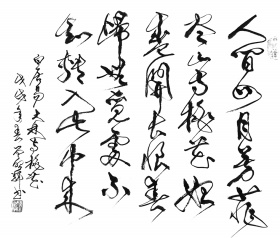 人間四月芳菲
尽山寺桃花始
盛開长恨春
歸無覓處不
知轉入此中来
白居易大林寺桃花
戊戌年春书